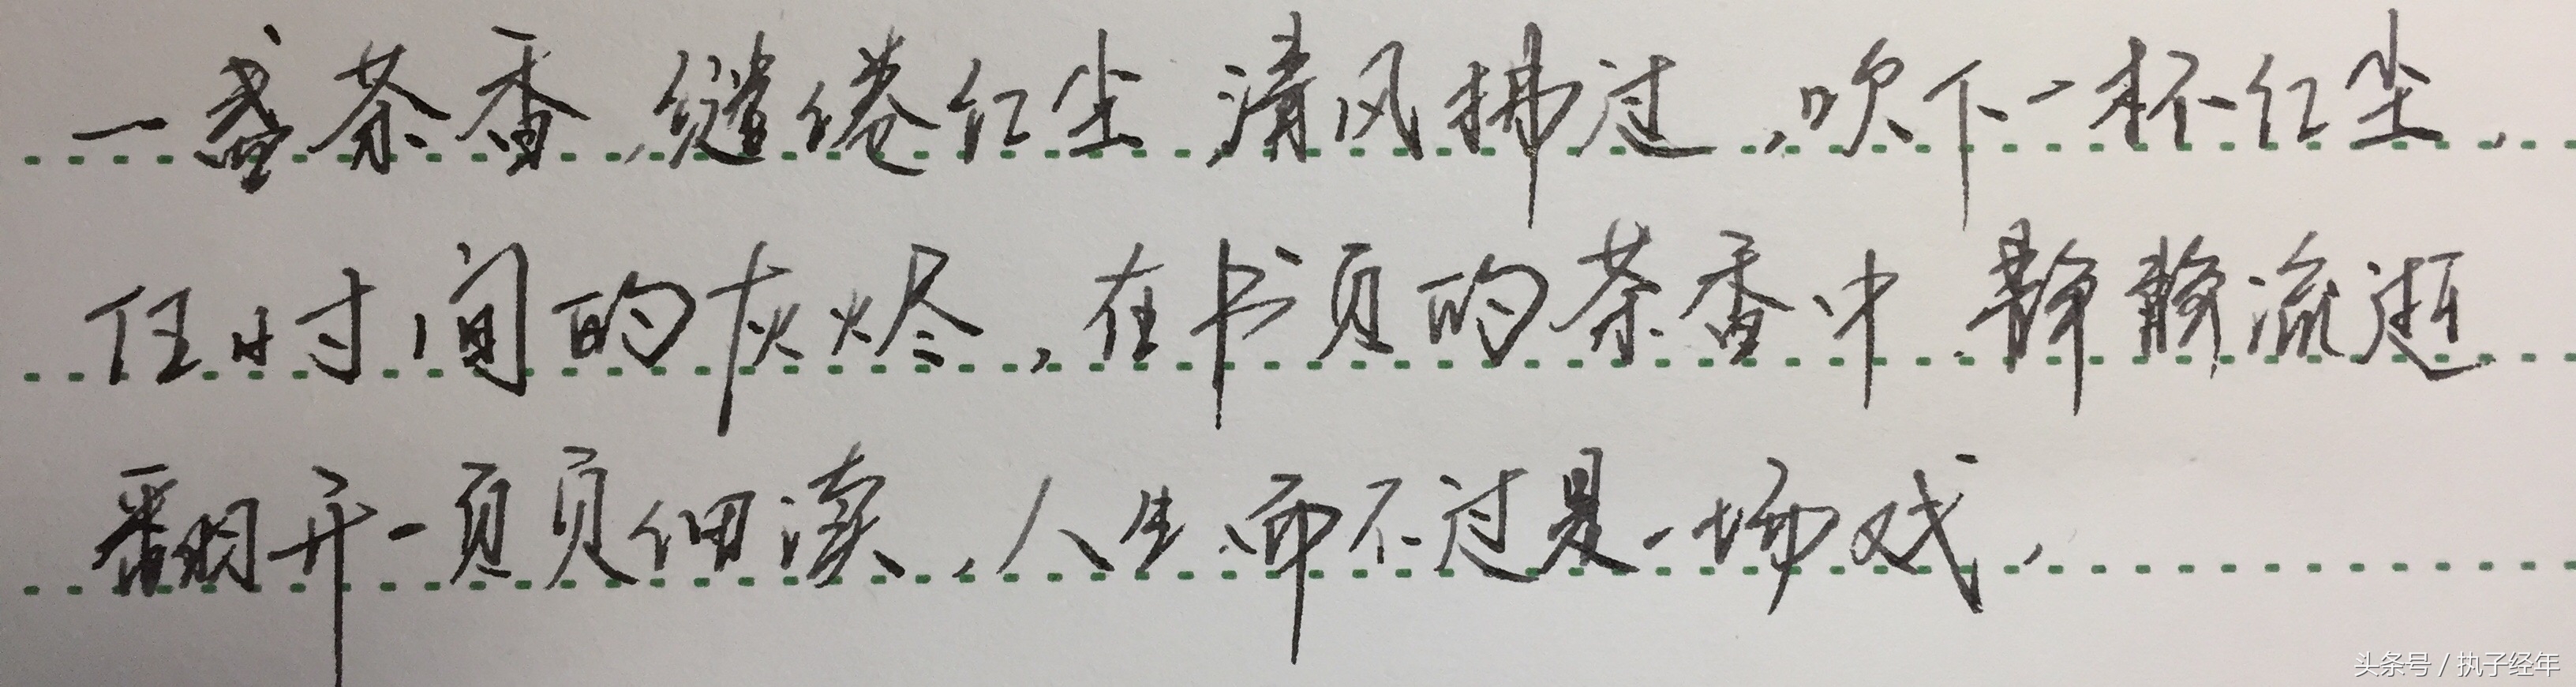 一盏茶香,缱倦红尘,清风拂过,吹下一杯红尘,
任时间的灰烬,在书页的茶香中,静静流逝
翻开一页页细读,人生而不过是一场戏,
头条号 / 执子经年